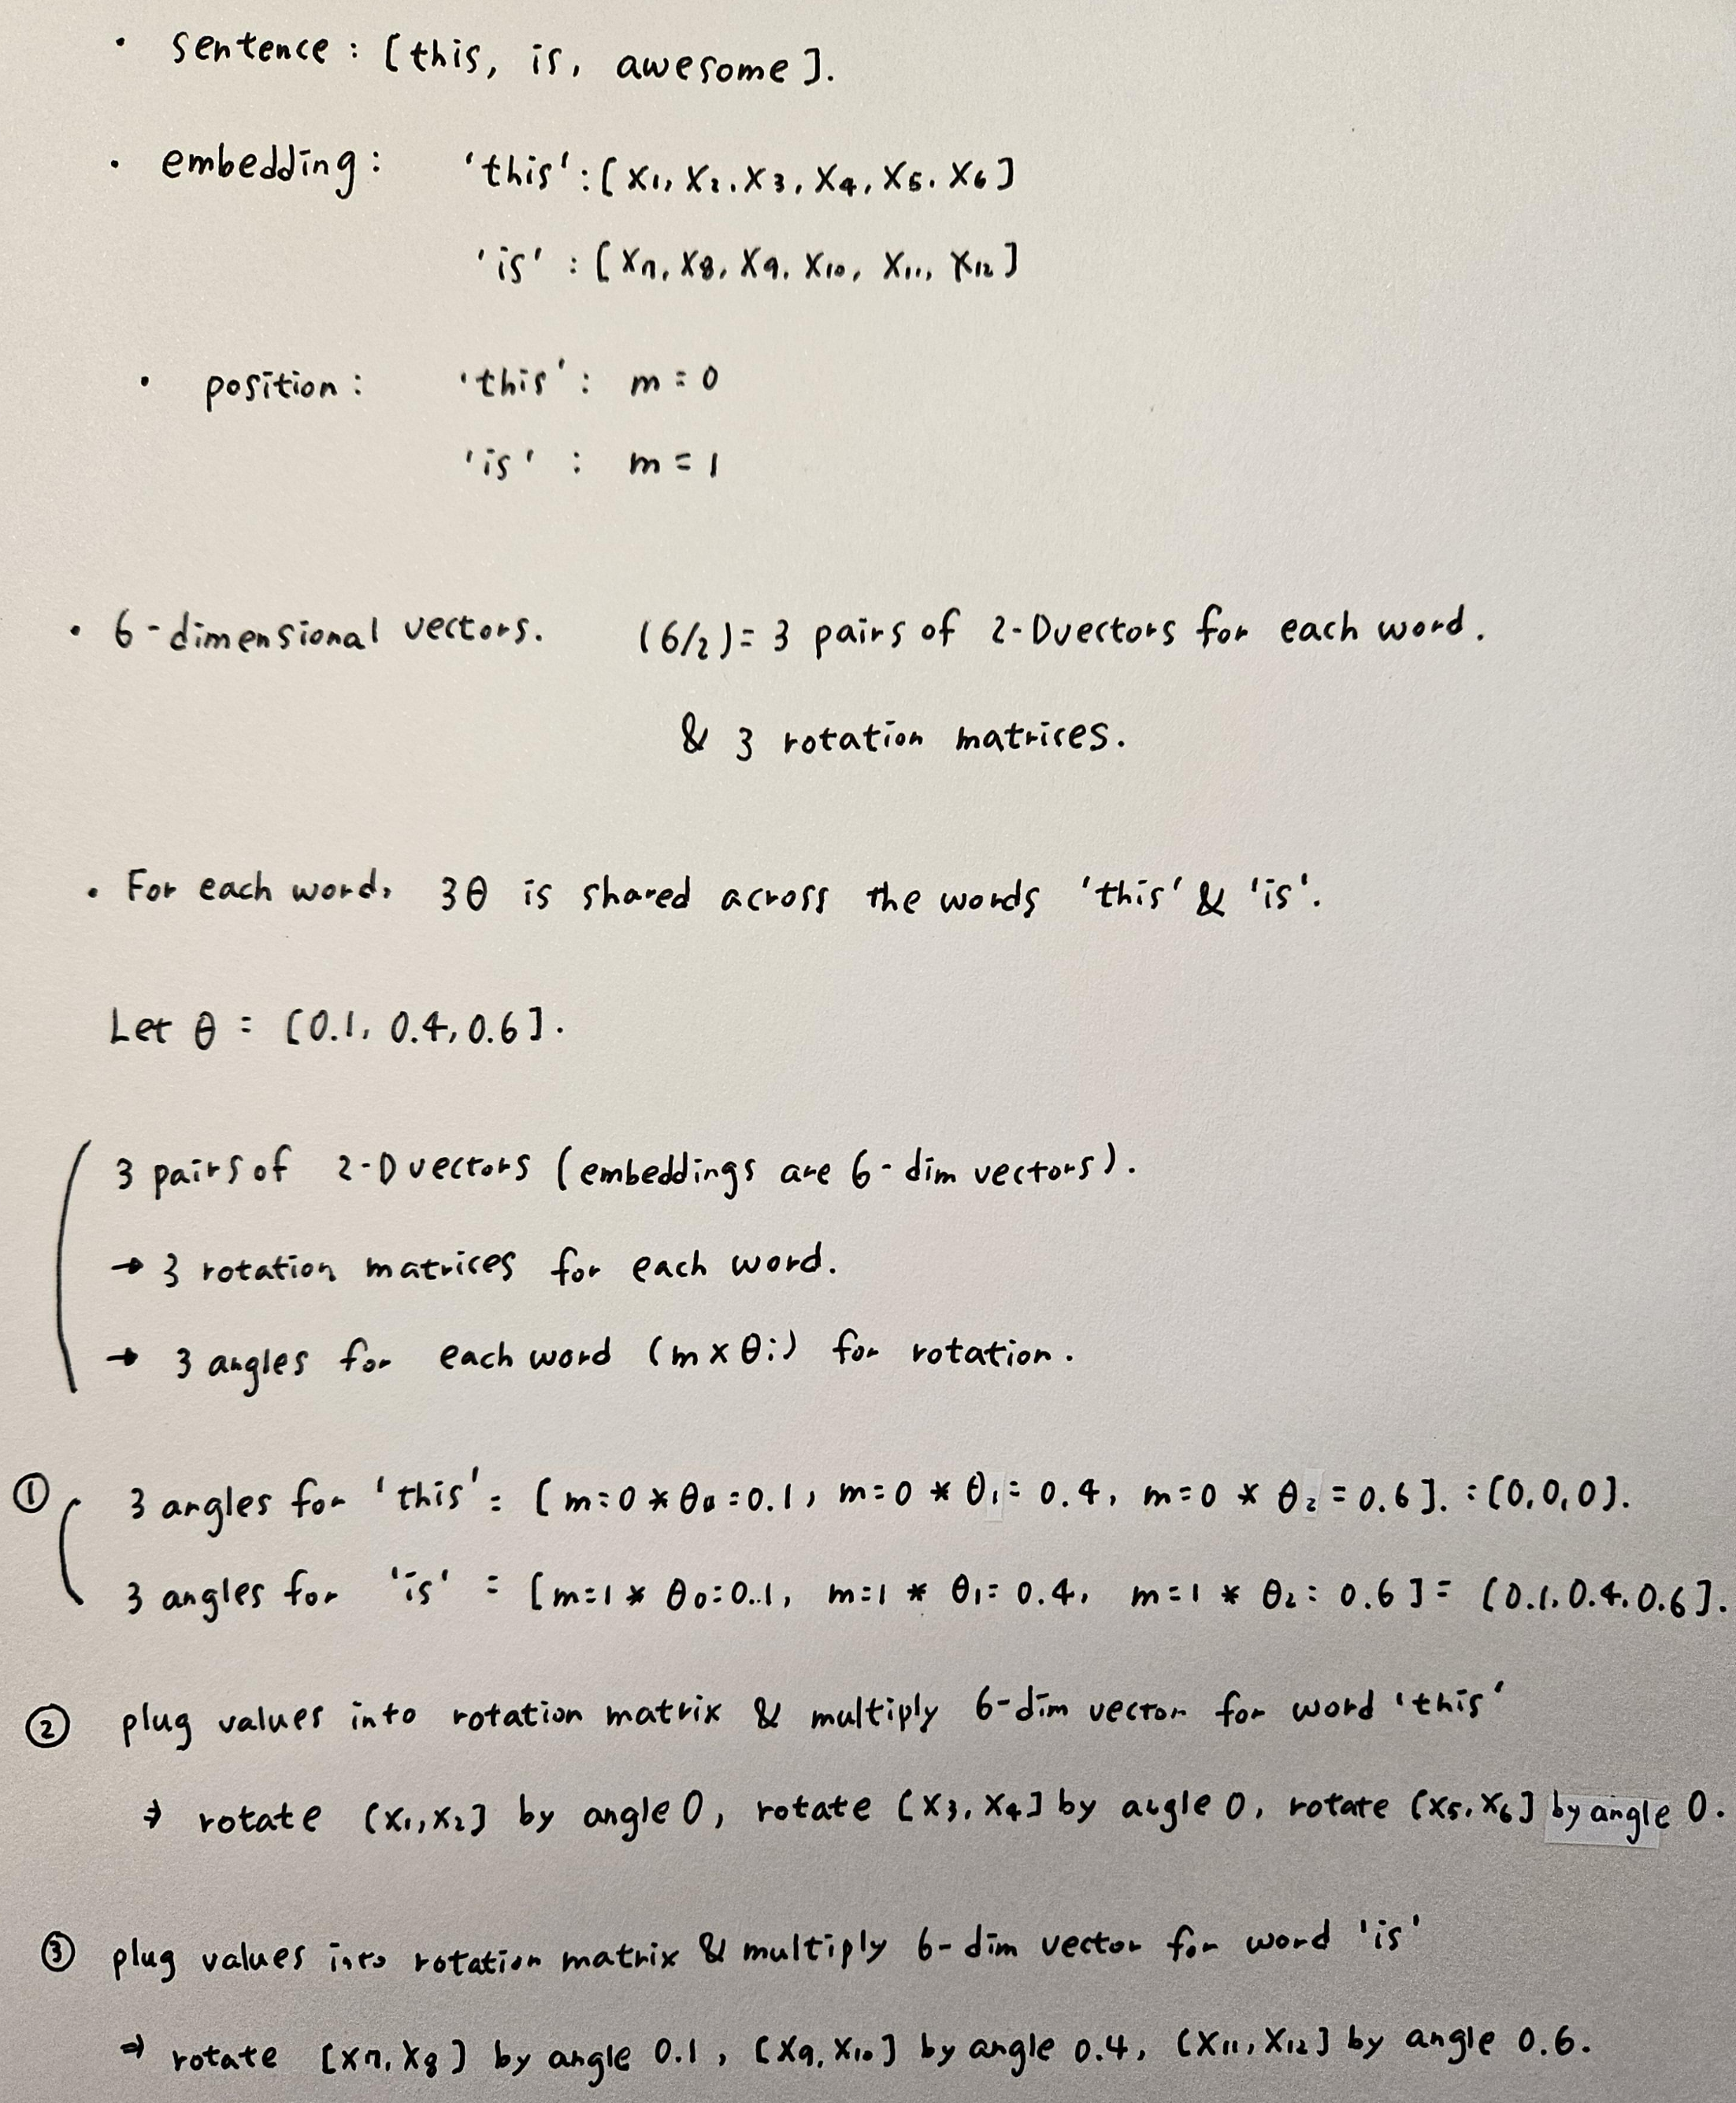 • sentence : [this, is, awesome].
• embedding : 'this' : [x₁, x₂, x₃, x₄, x₅, x₆]
'is' : [x₇, x₈, x₉, x₁₀, x₁₁, x₁₂]
• position : 'this' : m = 0
'is' : m = 1
• 6-dimensional vectors. (6/2) = 3 pairs of 2-D vectors for each word.
& 3 rotation matrices.
• For each word, 3θ is shared across the words 'this' & 'is'.
Let θ = [0.1, 0.4, 0.6].
3 pairs of 2-D vectors (embeddings are 6-dim vectors).
→ 3 rotation matrices for each word.
→ 3 angles for each word (m x θi) for rotation.
① 3 angles for 'this' = [m=0 * θ₀=0.1, m=0 * θ₁= 0.4, m=0 * θ₂ = 0.6]. = [0,0,0].
3 angles for 'is' = [m=1 * θ₀=0.1, m=1 * θ₁= 0.4, m=1 * θ₂= 0.6] = [0.1, 0.4, 0.6].
② plug values into rotation matrix & multiply 6-dim vector for word 'this'
⇒ rotate [x₁,x₂] by angle 0, rotate [x₃, x₄] by angle 0, rotate [x₅, x₆] by angle 0.
③ plug values into rotation matrix & multiply 6-dim vector for word 'is'
⇒ rotate [x₇, x₈] by angle 0.1, [x₉, x₁₀] by angle 0.4, [x₁₁, x₁₂] by angle 0.6.